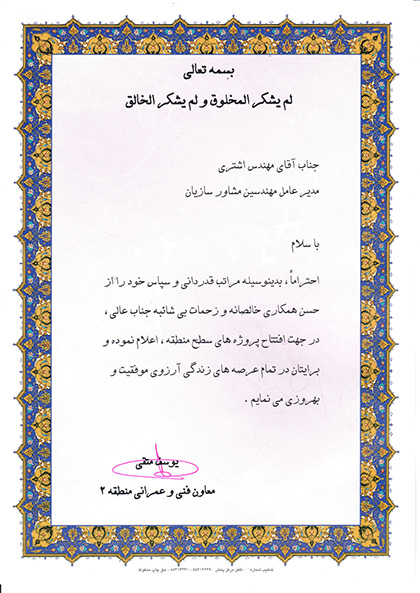 بسمه تعالی
لم یشکر المخلوق و لم یشکر الخالق
جناب آقای مهندس اشتری
مدیر عامل مهندسین مشاور سازیان
با سلام
احتراماً ، بدینوسیله مراتب قدردانی و سپاس خود را از
حسن همکاری خالصانه و زحمات بی شائبه جناب عالی ،
در جهت افتتاح پروژه های سطح منطقه ، اعلام نموده و
برایتان در تمام عرصه های زندگی آرزوی موفقیت و
بهروزی می نمایم .
یوسف متقی
معاون فنی و عمرانی منطقه ۲